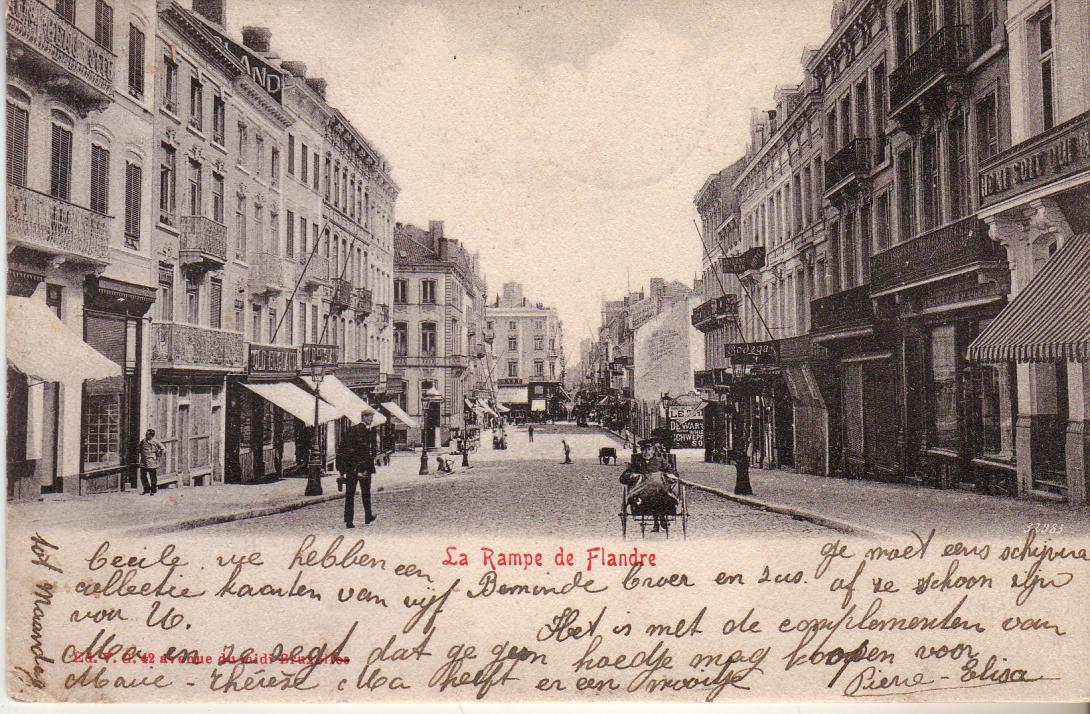 LAND
Bodega
DEWAR'S
SCHWEPP
NE M'OUBL
32983
La Rampe de Flandre
Cecile we hebben een
collectie kaarten van vijf
voor U.
Beminde broer en zus.
ge moet eens schijven
of ze schoon zijn
Het is met de complementen van
Ma en ze zegt dat ge geen hoedje mag koopen voor
Marie-Thérèse Ma heeft er een mooitje
Pierre-Elisa
tot Maandag
Ed. V. G. 12 avenue du midi Bruxelles